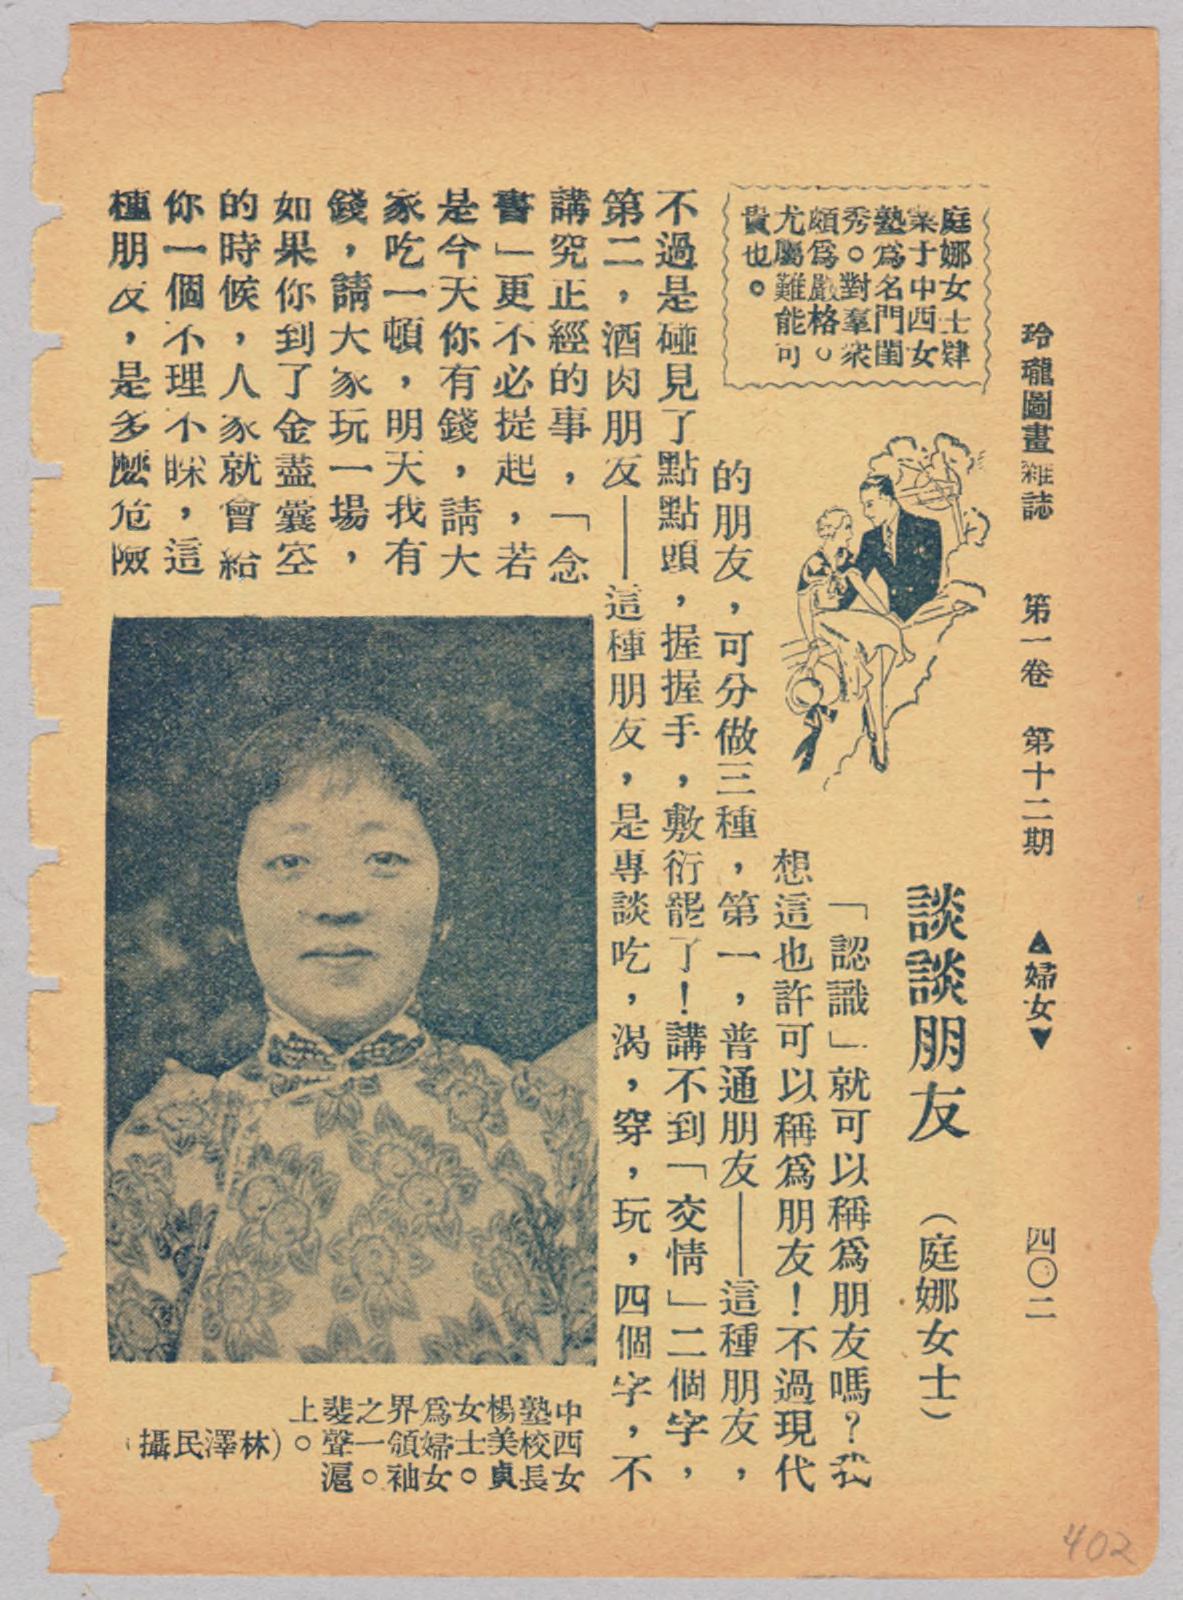 玲瓏圖畫雜誌　第一卷　第十二期　▲婦女▼　四〇二
談談朋友　（庭娜女士）
庭娜女士肄
業于中西女
塾爲名門閨
秀。對羣衆
頗爲嚴格。
尤屬難能可
貴也。
「認識」就可以稱爲朋友嗎？我
想這也許可以稱爲朋友！不過現代
的朋友，可分做三種，第一，普通朋友——這種朋友，
不過是碰見了點點頭，握握手，敷衍罷了！講不到「交情」二個字，
第二，酒肉朋友——這種朋友，是專談吃，渴，穿，玩，四個字，不
講究正經的事，「念
書」更不必提起，若
是今天你有錢，請大
家吃一頓，明天我有
錢，請大家玩一場，
如果你到了金盡囊空
的時候，人家就會給
你一個不理不睬，這
種朋友，是多麽危險
中西女
塾校長
楊美貞
女士。
爲婦女
界領袖
之一。
斐聲滬
上。
（林澤民攝
402